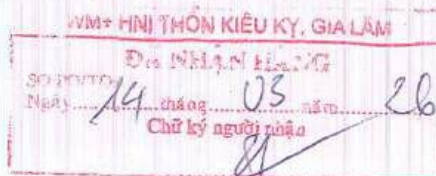 WM+ HNI THÔN KIÊU KỴ, GIA LÂM
ĐÃ NHẬN HÀNG
Ngày 14 tháng 03 năm 26
Chữ ký người nhận